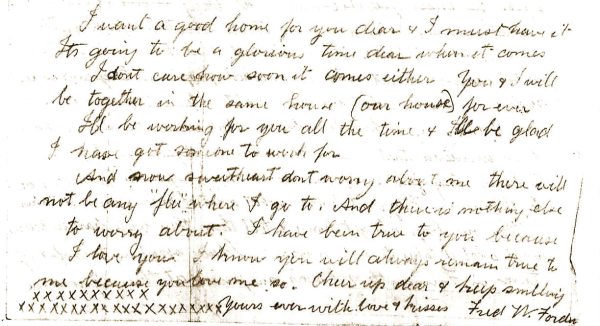 I want a good home for you dear & I must have it
Its going to be a glorious time dear when it comes
I dont care how soon it comes either You & I will
be together in the same house (our house) for ever
I'll be working for you all the time & I'll be glad
I have got someone to work for
And now sweetheart dont worry about me there will
not be any "flu" where I go to. And there is nothing else
to worry about. I have been true to you because
I love you I know you will always remain true to
me because you love me so. Cheer up dear & keep smiling
xxxxxxxxxx
xxxxxxxxxxxxxxxxx Yours ever with love & kisses Fred W Forde